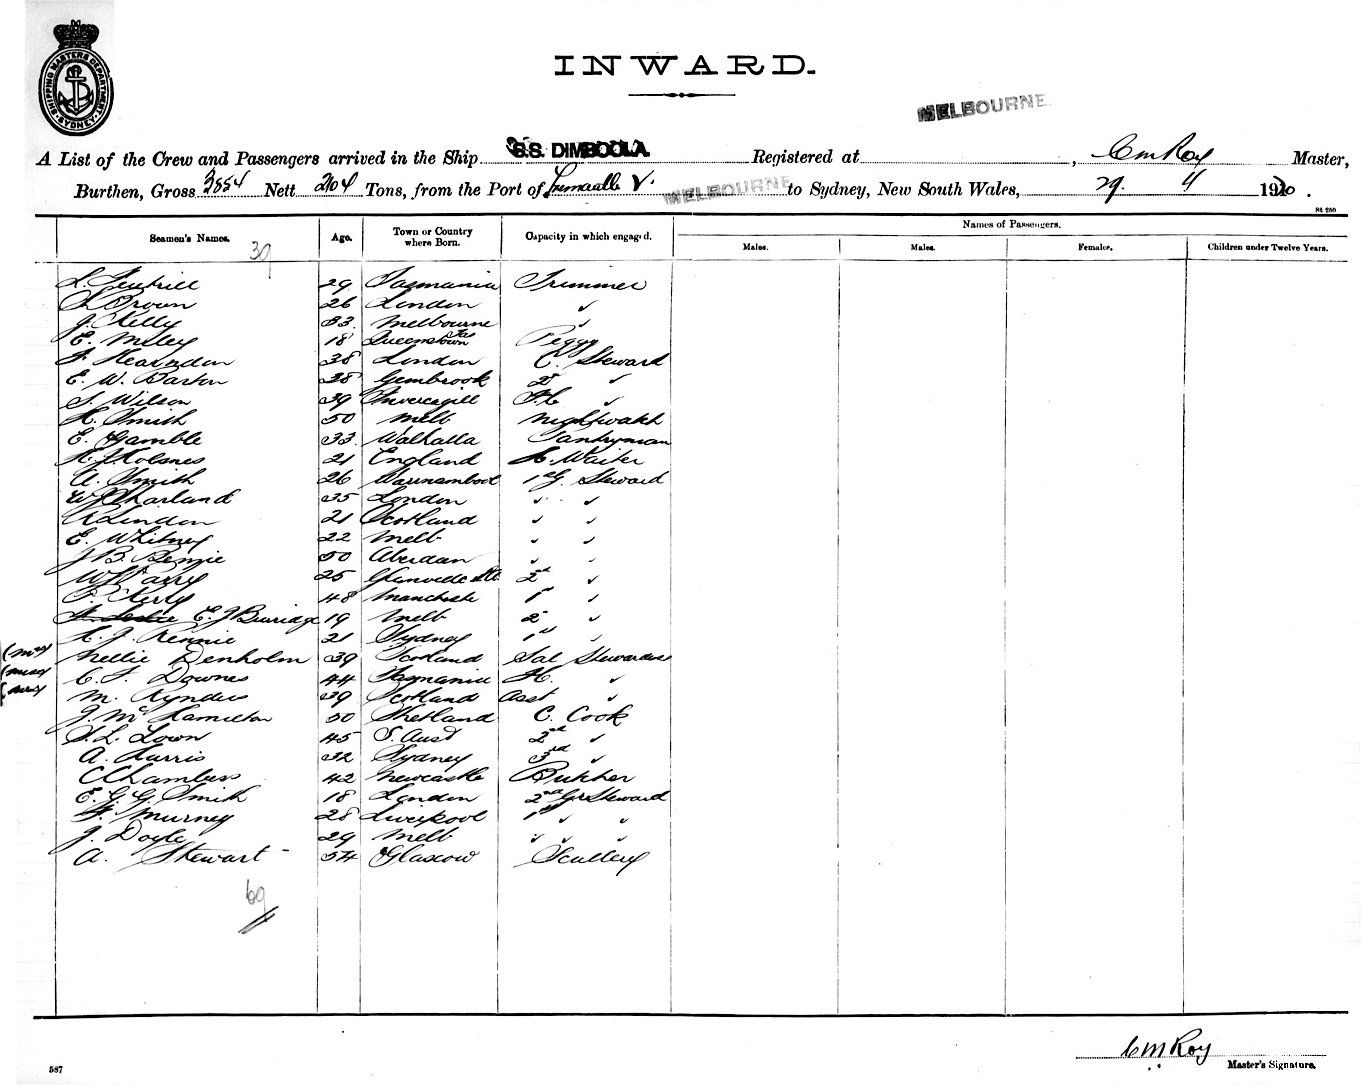 SHIPPING MASTERS DEPARTMENT SYDNEY
INWARD.
MELBOURNE
A List of the Crew and Passengers arrived in the Ship S.S. DIMBOOLA Registered at , C M Roy Master,
Burthen, Gross 3854 Nett Tons, from the Port of Fremantle V. MELBOURNE to Sydney, New South Wales, 29. 4 1920.
S4 250
Seamen's Names. Age. Town or Country where Born. Capacity in which engaged. Names of Passengers.
Males. Males. Females. Children under Twelve Years.
39
29 Tasmania Trimmer
S. Brown 26 London ✓
J. Kelly 33 Melbourne ✓
E. Miley 18 Queenstown Tas Peggy
Hearndon 38 London C. Steward
E. W. Barton 28 Gembrook 2nd ✓
S. Wilson 39 Invercagill F.C ✓
H. Smith 50 Melb Nightwatch
E. Gamble 33 Walhalla Pantryman
21 England Waiter
A. Smith 26 Warrnambool 1st G. Steward
W Sharland 35 London ✓ ✓
R Lindon 21 Scotland ✓ ✓
E. Whitney 22 Melb ✓ ✓
J B. Bennie 50 Aberdeen ✓ ✓
W Parry 25 2nd ✓
P. Kerly 48 Manchester 1st ✓
E. J Burridge 19 Melb 2nd ✓
K. J. Rennie 21 Sydney 1st ✓
(Mrs) Nellie Denholm 39 Scotland Sal Stewardess
(Miss) C. F. Downes 44 Tasmania H. ✓
M. Rynders 39 Scotland Asst ✓
J. Mc Hamilton 50 Shetland C. Cook
S. L. Lown 45 S. Aust 2nd ✓
A. Harris 32 Sydney 3rd ✓
C Chambers 42 Newcastle Butcher
E. G. G. Smith 18 London 2nd Gr Steward
Murney 28 Liverpool 1st ✓ ✓
J. Doyle 29 Melb ✓ ✓ ✓
A. Stewart 54 Glascow Scullery
69
C M Roy
Master's Signature.
587